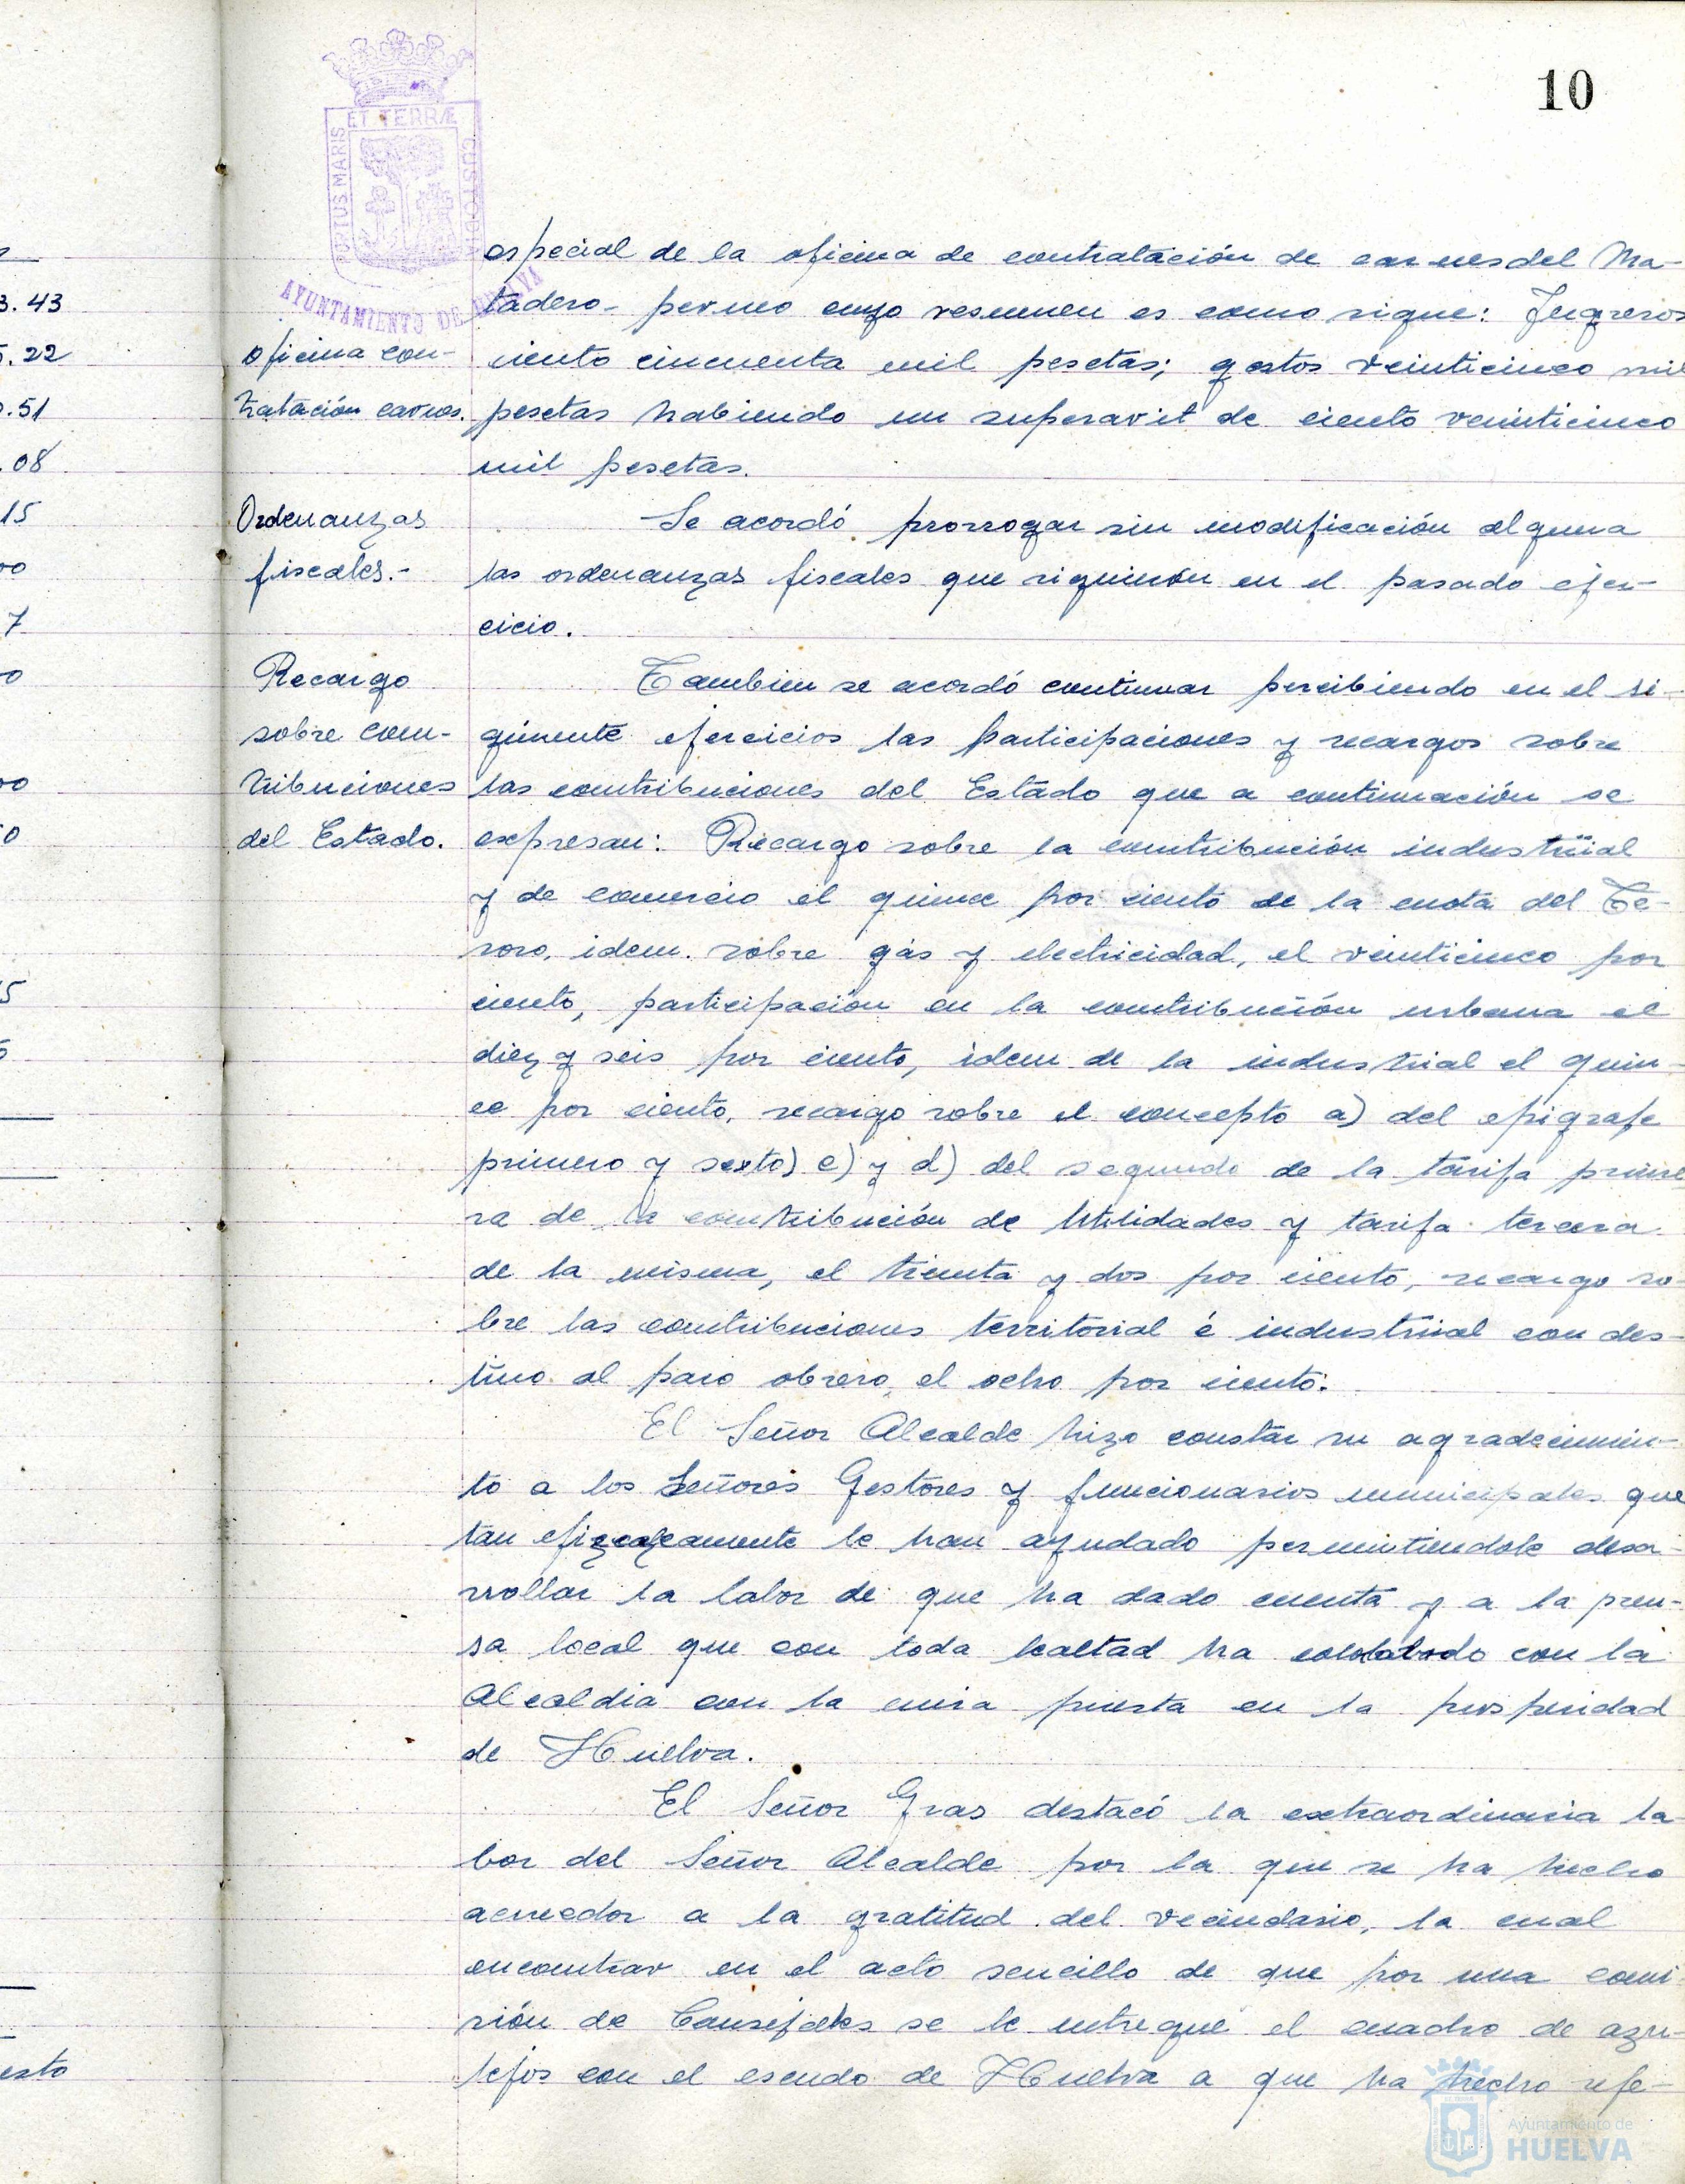 10
PORTUS MARIS
ET TERRÆ
CUSTODIA
AYUNTAMIENTO DE HUELVA
3.43
5.22
.51
.08
15
00
7
0
00
0
5
5
esto
oficina con-
tratación carnes.
Ordenanzas
fiscales.-
Recargo
sobre con-
tribuciones
del Estado.
especial de la oficina de contratación de carnes del Ma-
tadero- cuyo resumen es como sigue: Ingresos
ciento cincuenta mil pesetas; gastos veinticinco mil
pesetas habiendo un superavit de ciento veinticinco
mil pesetas.
Se acordó prorrogar sin modificación alguna
las ordenanzas fiscales que riguieron en el pasado ejer-
cicio.
Tambien se acordó continuar percibiendo en el si-
guiente ejercicios las participaciones y recargos sobre
las contribuciones del Estado que a continuación se
expresan: Recargo sobre la contribución industrial
y de comercio el quince por ciento de la cuota del Te-
soro, idem. sobre gas y electricidad, el veinticinco por
ciento, participación en la contribución urbana el
diez y seis por ciento, idem de la industrial el quin-
ce por ciento, recargo sobre el concepto a) del epigrafe
primero y sexto) c) y d) del segundo de la tarifa prime
ra de la contribución de Utilidades y tarifa tercera
de la misma, el treinta y dos por ciento, recargo so-
bre las contribuciones territorial é industrial con des-
tino al paro obrero, el ocho por ciento.
El Señor Alcalde hizo constar su agradecimien-
to a los Señores Gestores y funcionarios municipales que
tan eficazmente le han ayudado permitiendole desa-
rrollar la labor de que ha dado cuenta y a la pren-
sa local que con toda lealtad ha con la
Alcaldia con la mira puesta en la prosperidad
de Huelva.
El Señor Gras destacó la extraordinaria la-
bor del Señor Alcalde por la que se ha hecho
acreedor a la gratitud del vecindario, la cual
encontrar en el acto sencillo de que por una comi-
sión de Concejales se le entregue el cuadro de azu-
lejos con el escudo de Huelva a que ha hecho refe-
Ayuntamiento de
HUELVA